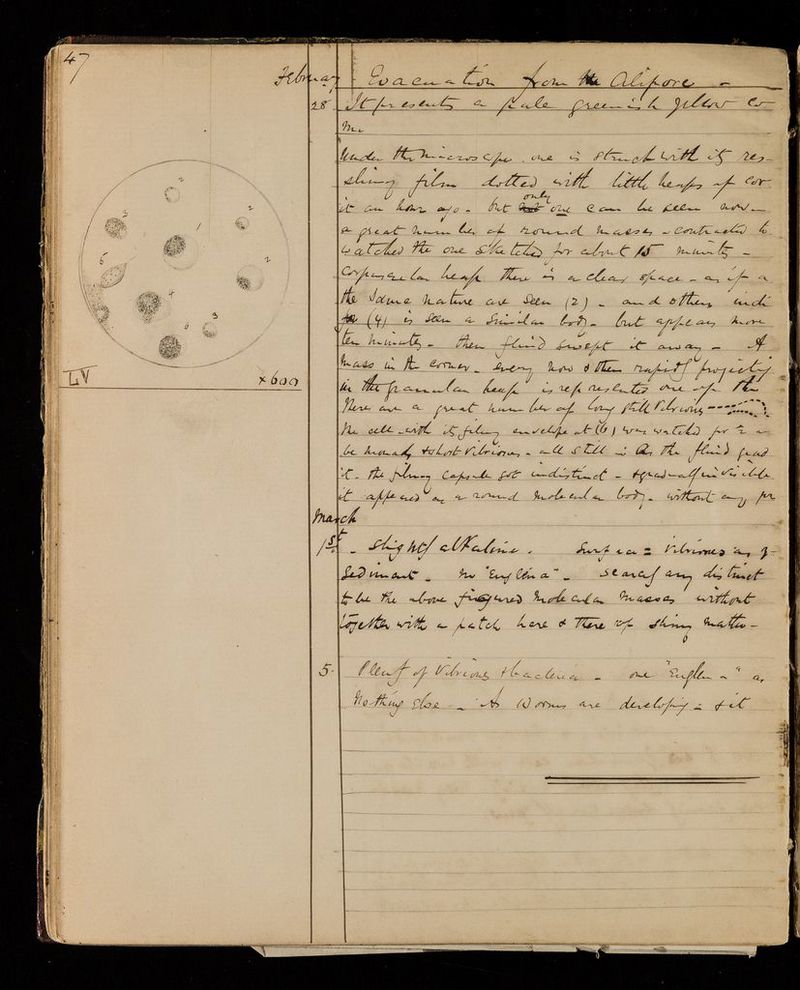 47
February Evacuation from the Alipore -
28 It presents a pale greenish yellow co
Under the microscope one is struck with its res-
slimy film dotted with little heaps of cor
it an hour ago - but only one can be seen now -
a great number of round masses - contracted
watched the one sketched for about 15 minutes -
Corpuscular heap there is a clear space - as if a
the same nature are seen (2) - and others indi
(4) is seen a similar body - but appears more
ten minutes - then fluid swept it away - A
mass in the corner - every now & then rapidly projecting
in the granular heap is represented one of the
There are a great number of long still vibriones
The cell with its filmy envelope at (6) was watched for
be monads & short vibriones - all still - As the fluid
it - the filmy capsule got indistinct - & gradually invisible
it appeared as a round molecular body - without any
March
1st - Slightly alkaline. Surface = vibriones as
Sediment - no "Euglena" - scarcely any distinct
to be the above figured molecular masses without
together with a patch here & there of slimy matter -
5. Plenty of vibriones & bacteria - one "Euglena" as
Nothing else - Worms are developing - & it
1
2
2
2
3
3
4
5
6
LV
×600